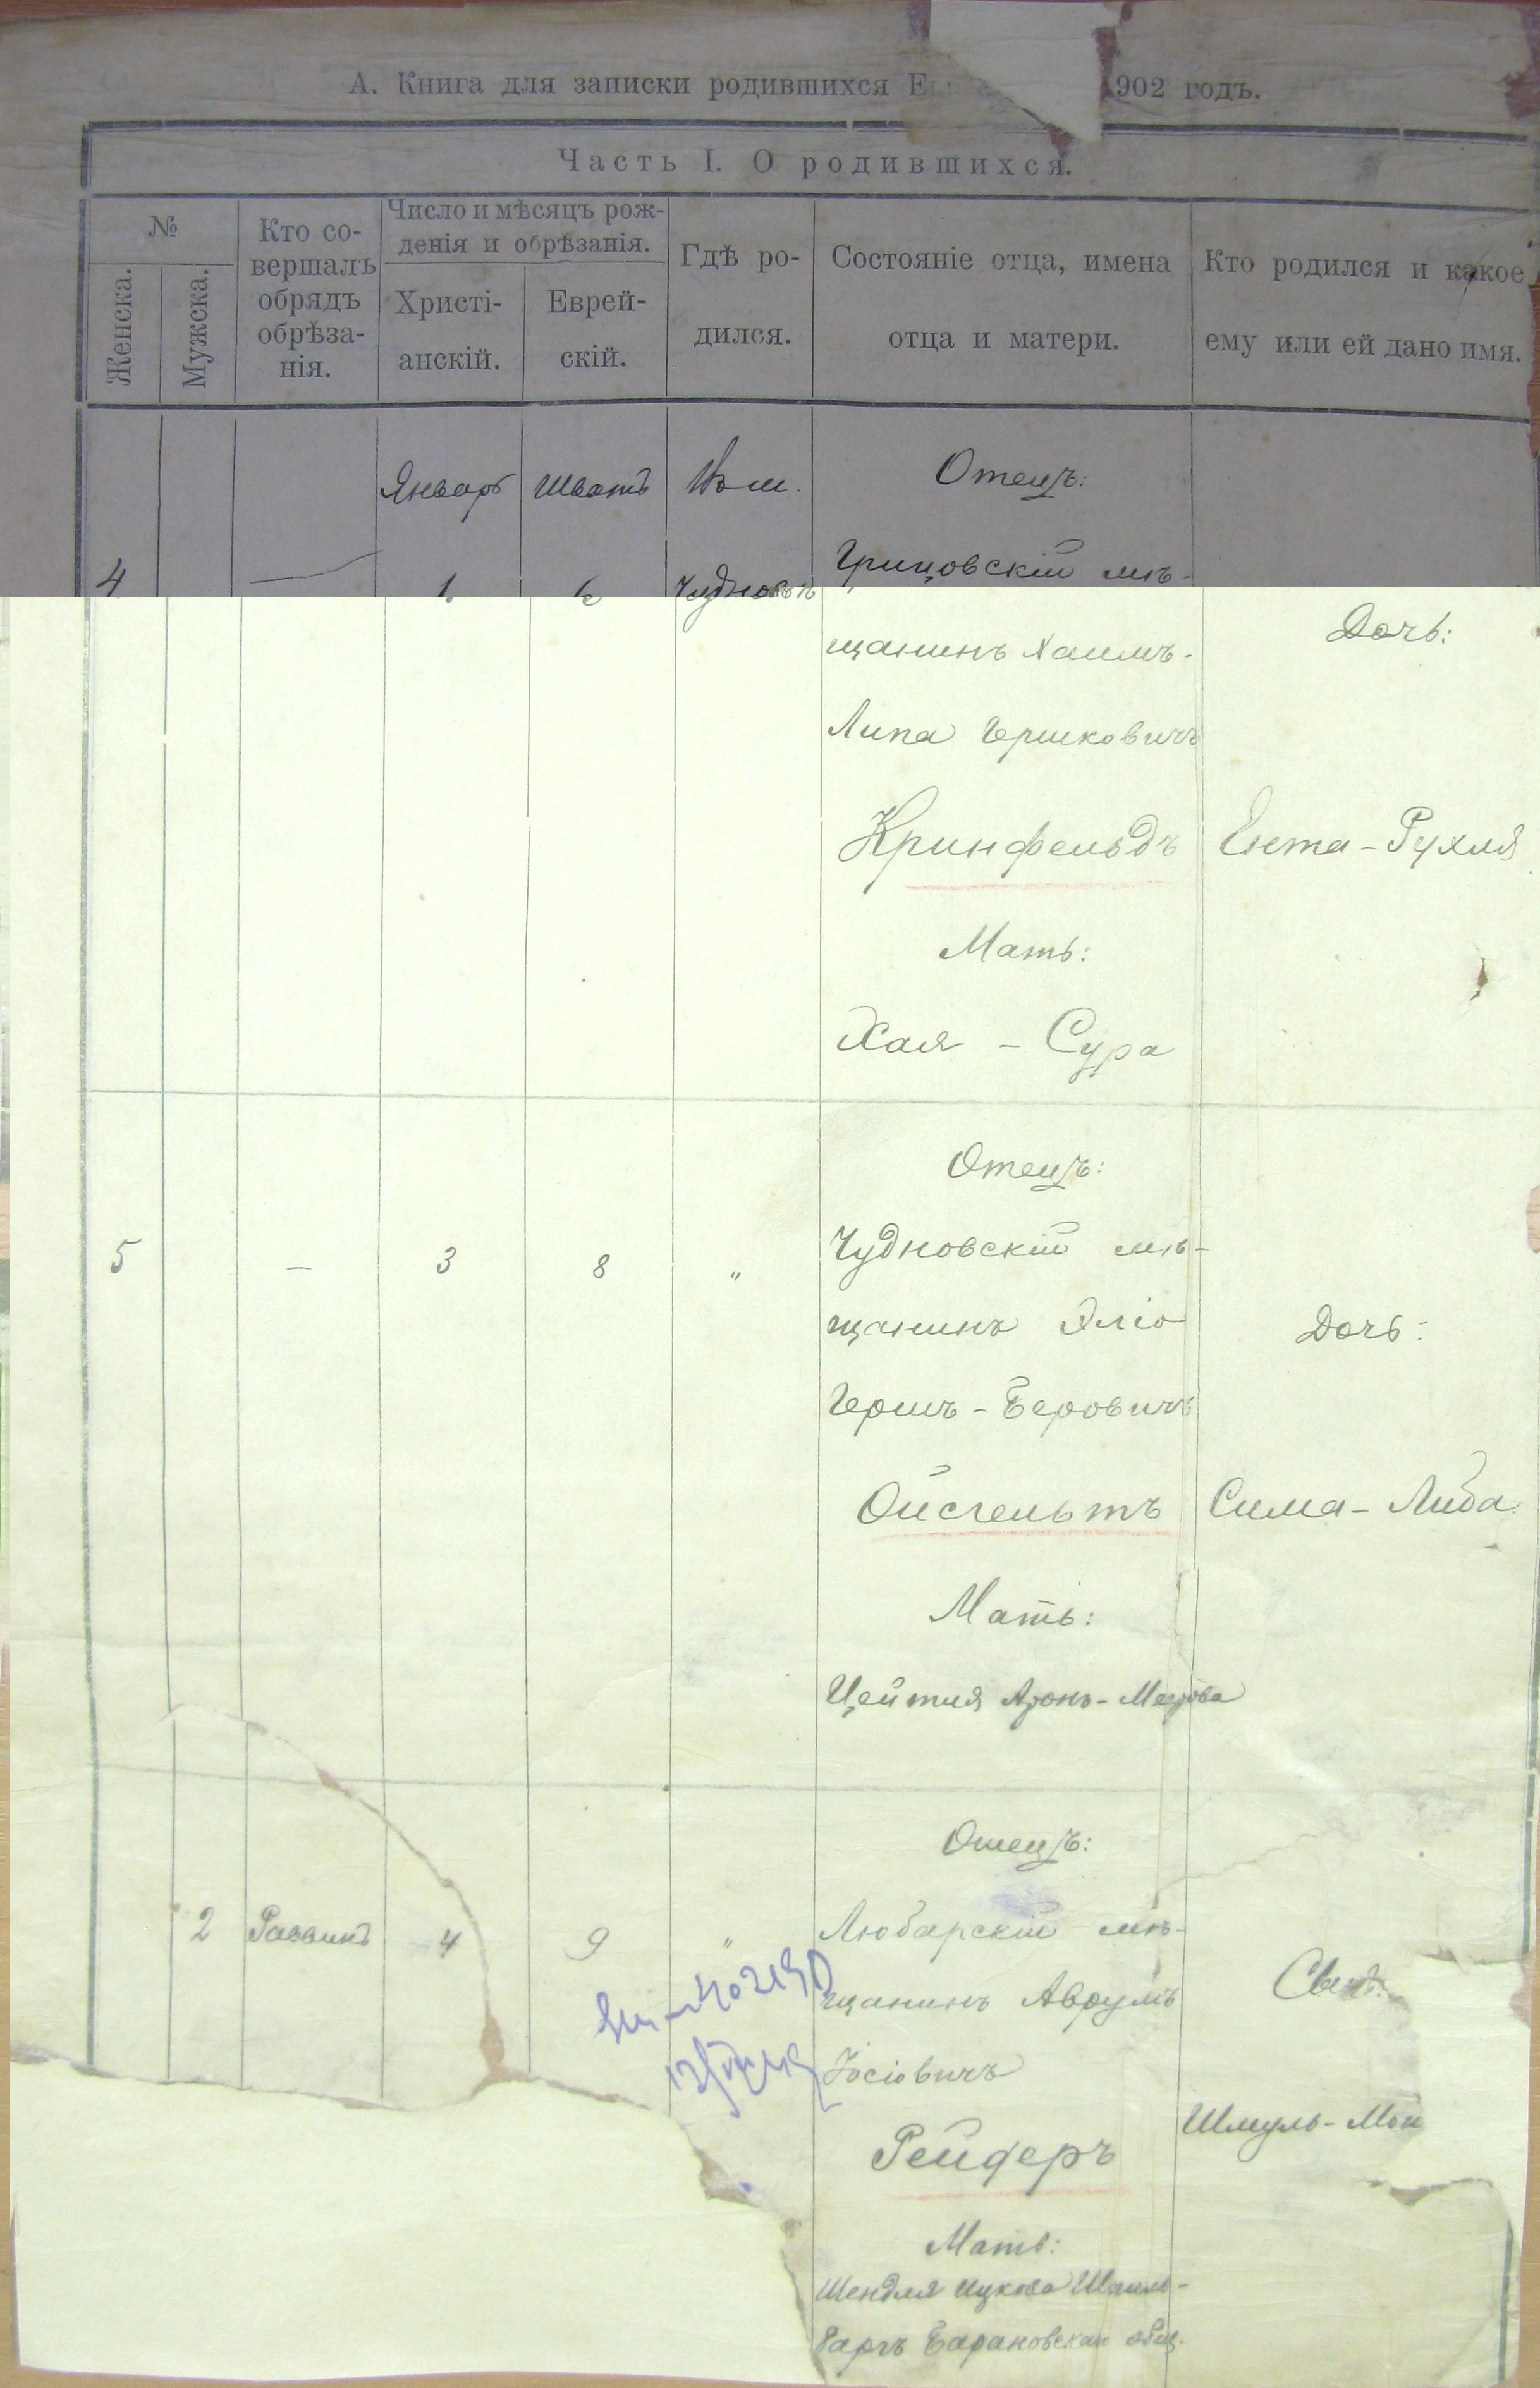 А. Книга для записки родившихся Ев 902 годъ.
Часть I. О родившихся.
№
Женска.
Мужска.
Кто со-
вершалъ
обрядъ
обрѣза-
нія.
Число и мѣсяцъ рож-
денія и обрѣзанія.
Христі-
анскій.
Еврей-
скій.
Гдѣ ро-
дился.
Состояніе отца, имена
отца и матери.
Кто родился и какое
ему или ей дано имя.
4
—
Январь
1
Шватъ
6
Въ м.
Чудновѣ
Отецъ:
Грицовскій мѣ-
щанинъ Хаимъ-
Липа Гершковичъ
Кринфельдъ
Мать:
Хая - Сура
Дочь:
Ента - Рухля
5
—
3
8
"
Отецъ:
Чудновскій мѣ-
щанинъ Эліо
Гершъ - Беровичъ
Ойсгельтъ
Мать:
Цейтля Аронъ - Меерова
Дочь:
Сима - Либа
2
Раввинъ
4
9
"
Отецъ:
Любарскій мѣ-
щанинъ Аврумъ
Іосіовичъ
Рейдеръ
Мать:
Шендля Ицкова
Барановская общ.
Сынъ:
Шмуль - Мой